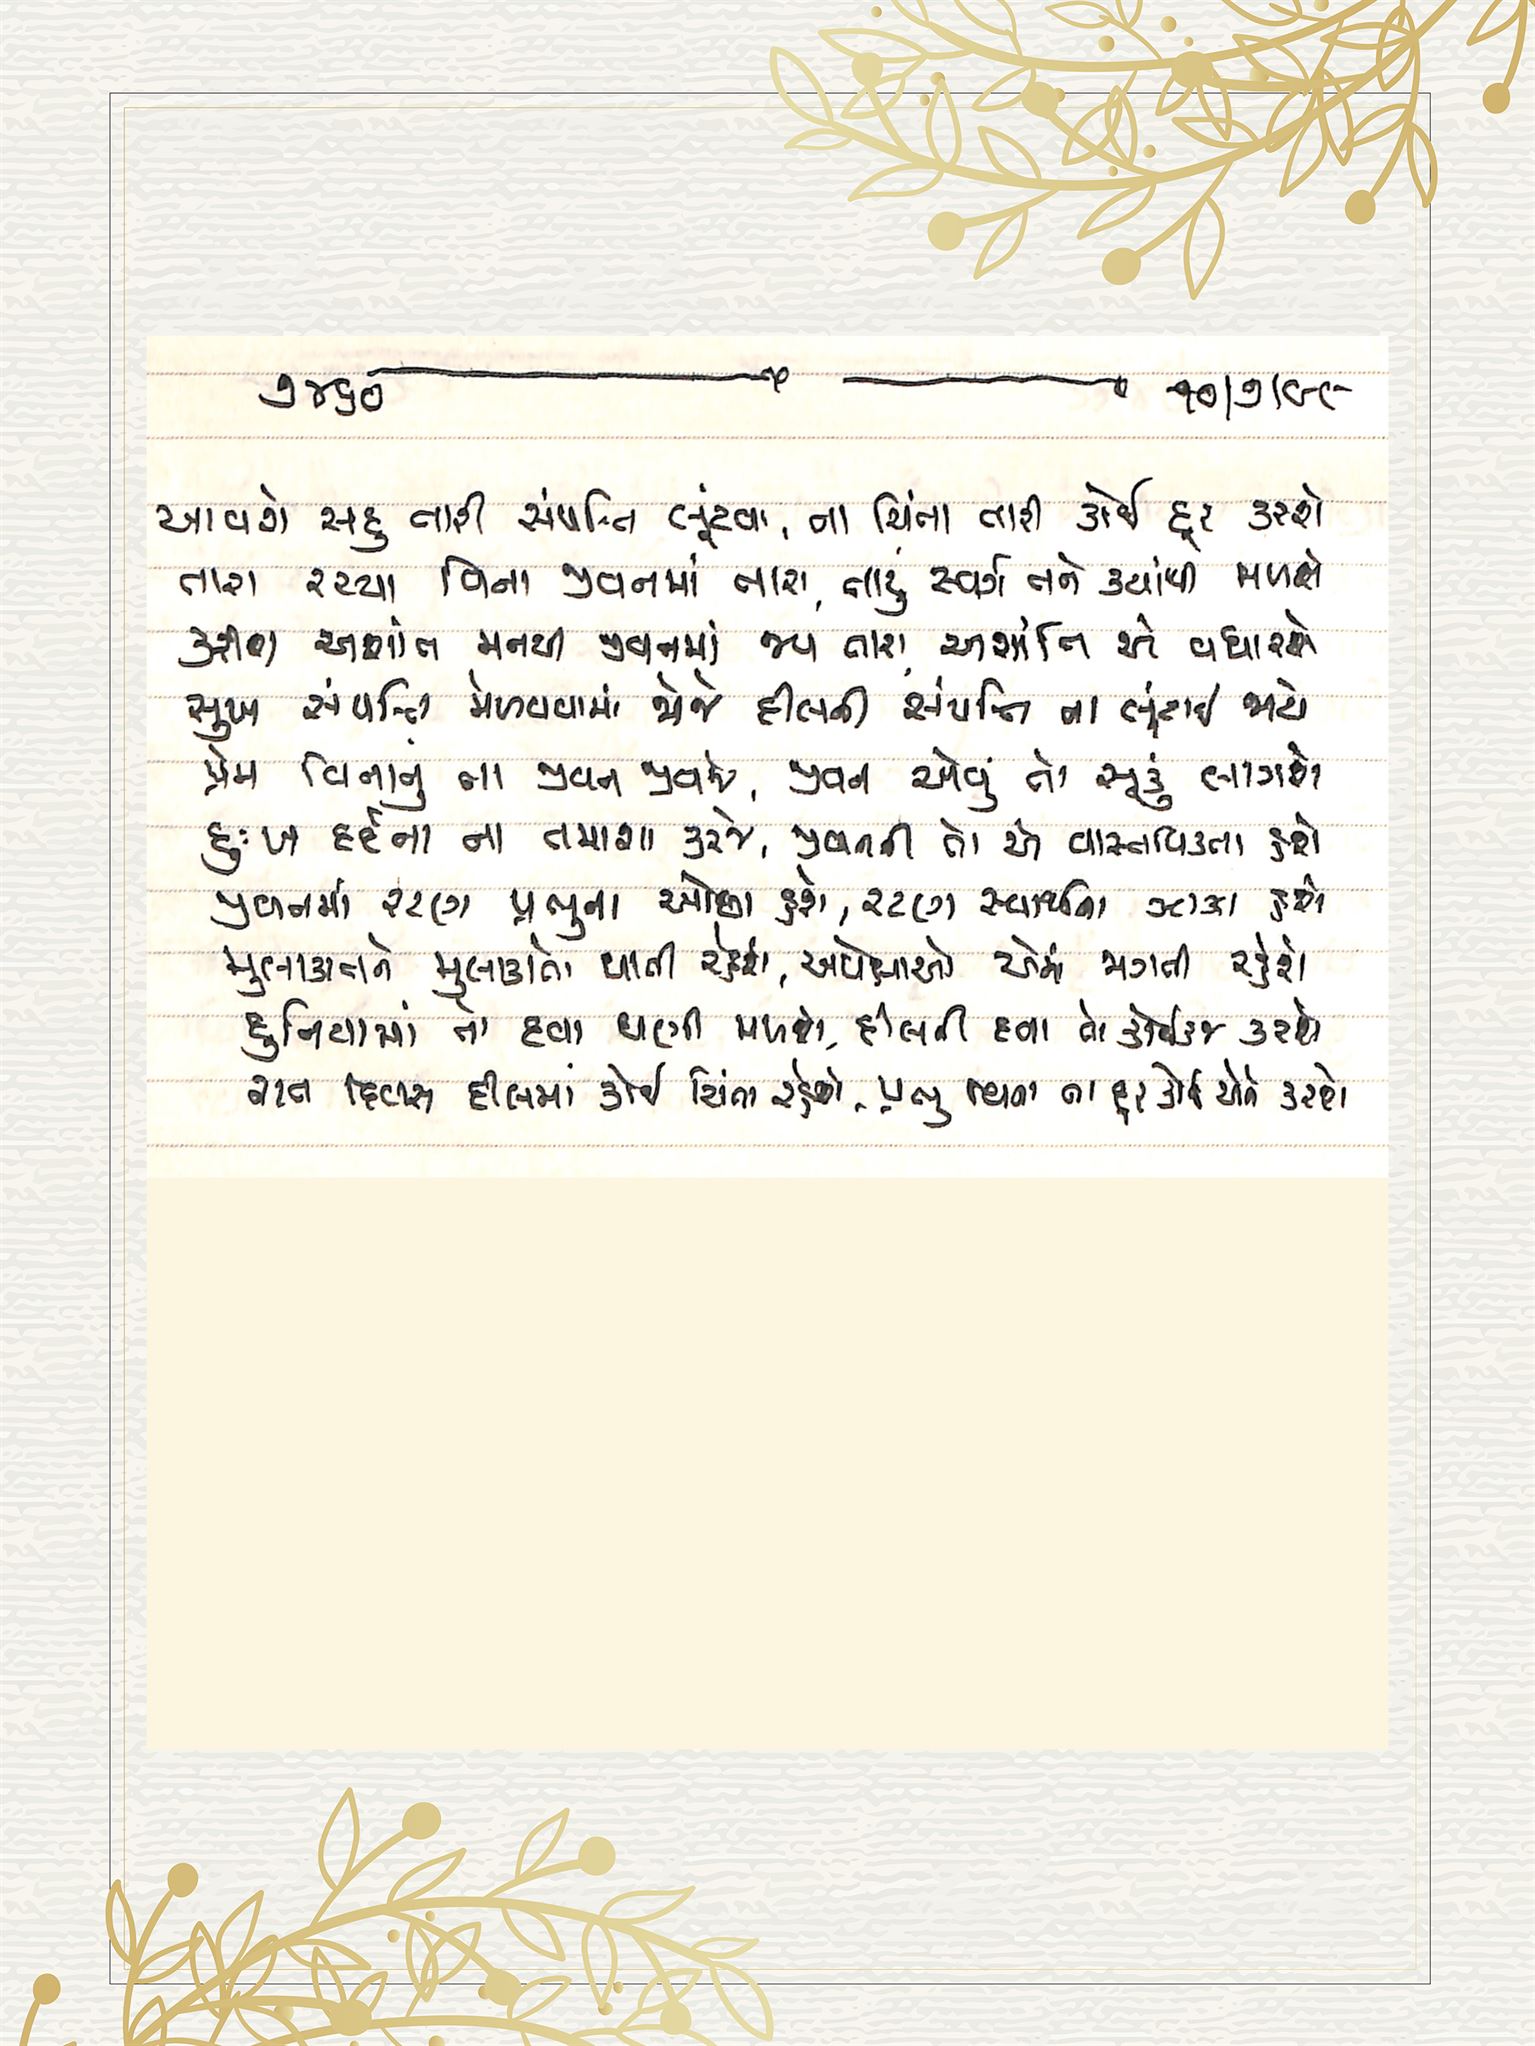 ૭૪૫૦ ૧૦/૭/૯૮
આવશે સહુ તારી સંપત્તિ લૂંટવા, ના ચિંતા તારી કોઈ દૂર કરશે
તારા રચ્યા વિના જીવનમાં તારા, તારું સ્વર્ગ તને ક્યાંથી મળશે
કરીશ અશાંત મનથી જીવનમાં જપ તારા, અશાંતિ એ વધારશે
સુખ સંપત્તિ મેળવવામાં જોજે દીલની સંપત્તિ ના લૂંટાઈ જાયે
પ્રેમ વિનાનું ના જીવન જીવજે, જીવન એવું તો સૂકું લાગશે
દુઃખ દર્દના ના તમાશા કરજે, જીવનની તો એ વાસ્તવિકતા હશે
જીવનમાં રટણ પ્રભુના ઓછા હશે, રટણ સ્વાર્થના ઝાઝા હશે
મુલાકાતને મુલાકાતો થાતી રહેશે, અપેક્ષાઓ એમાં જાગતી રહેશે
દુનિયામાં તો દવા ઘણી મળશે, દીલની દવા તો કોઈકજ કરશે
રાત દિવસ દીલમાં કોઈ ચિંતા રહેશે, પ્રભુ વિના ના દૂર કોઈ એને કરશે